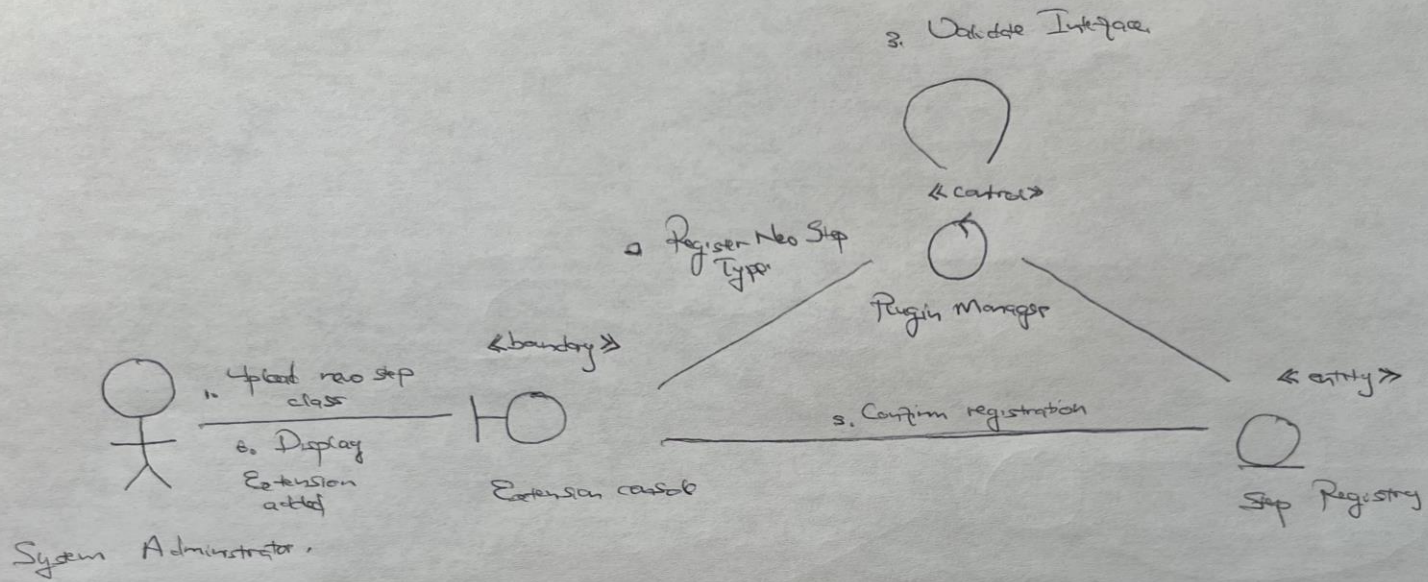 3. Validate Interface
<<control>>
Regiser New Step
Type
Plugin Manager
<<boundary>>
1. Upload new step
class
<<entity>>
5. Confirm registration
6. Display
Extension
added
Extension console
Step Registry
System Administrator.